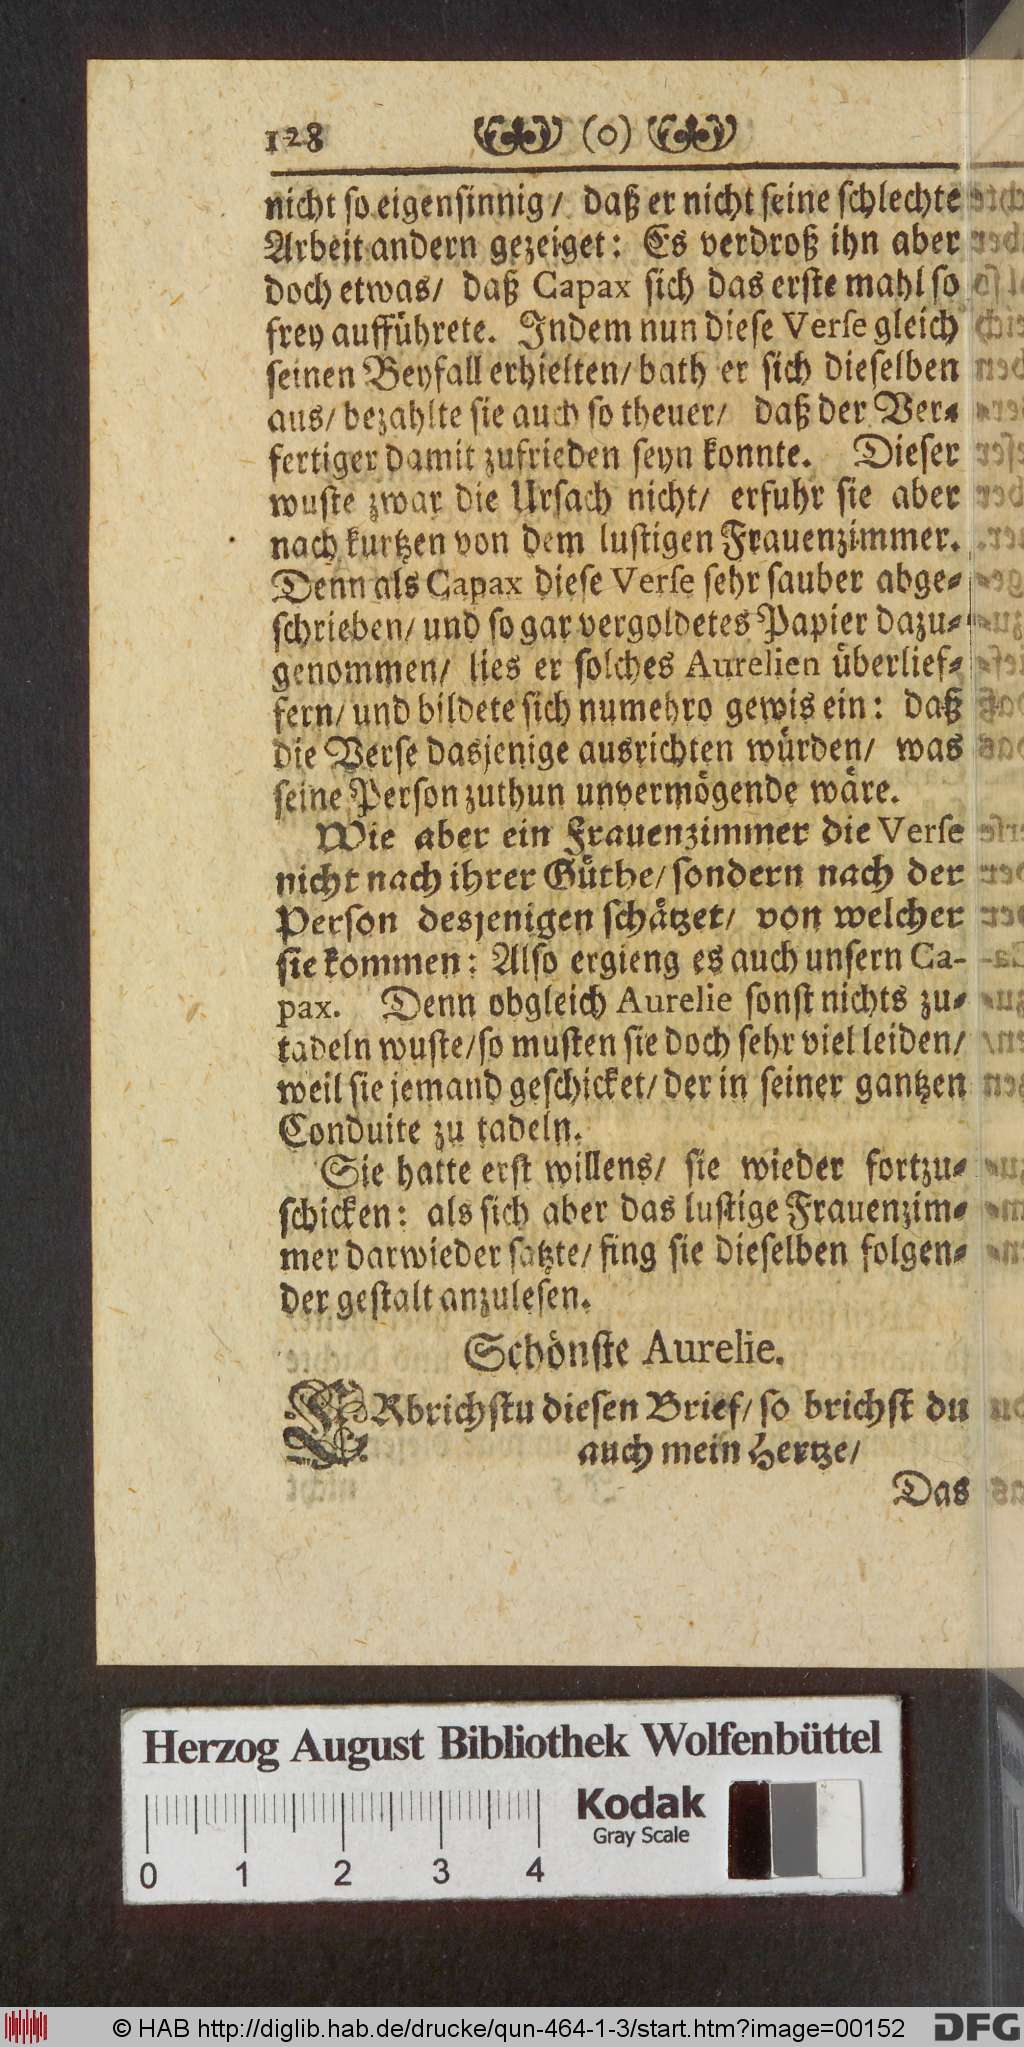 128 (o)
nicht so eigensinnig / daß er nicht seine schlechte
Arbeit andern gezeiget: Es verdroß ihn aber
doch etwas / daß Capax sich das erste mahl so
frey aufführete. Indem nun diese Verse gleich
seinen Beyfall erhielten / bath er sich dieselben
aus / bezahlte sie auch so theuer / daß der Ver-
fertiger damit zufrieden seyn konnte. Dieser
wuste zwar die Ursach nicht / erfuhr sie aber
nach kurtzen von dem lustigen Frauenzimmer.
Denn als Capax diese Verse sehr sauber abge-
schrieben / und so gar vergoldetes Papier dazu-
genommen / lies er solches Aurelien überlief-
fern / und bildete sich numehro gewis ein: daß
die Verse dasjenige ausrichten würden / was
seine Person zuthun unvermögende wäre.
Wie aber ein Frauenzimmer die Verse
nicht nach ihrer Güthe / sondern nach der
Person desjenigen schätzet / von welcher
sie kommen: Also ergieng es auch unsern Ca-
pax. Denn obgleich Aurelie sonst nichts zu-
tadeln wuste / so musten sie doch sehr viel leiden /
weil sie jemand geschicket / der in seiner gantzen
Conduite zu tadeln.
Sie hatte erst willens / sie wieder fortzu-
schicken: als sich aber das lustige Frauenzim-
mer darwieder satzte / fing sie dieselben folgen-
der gestalt anzulesen.
Schönste Aurelie.
ERbrichstu diesen Brief / so brichst du
auch mein Hertze /
Das
Herzog August Bibliothek Wolfenbüttel
Kodak
Gray Scale
0 1 2 3 4
© HAB http://diglib.hab.de/drucke/qun-464-1-3/start.htm?image=00152
DFG